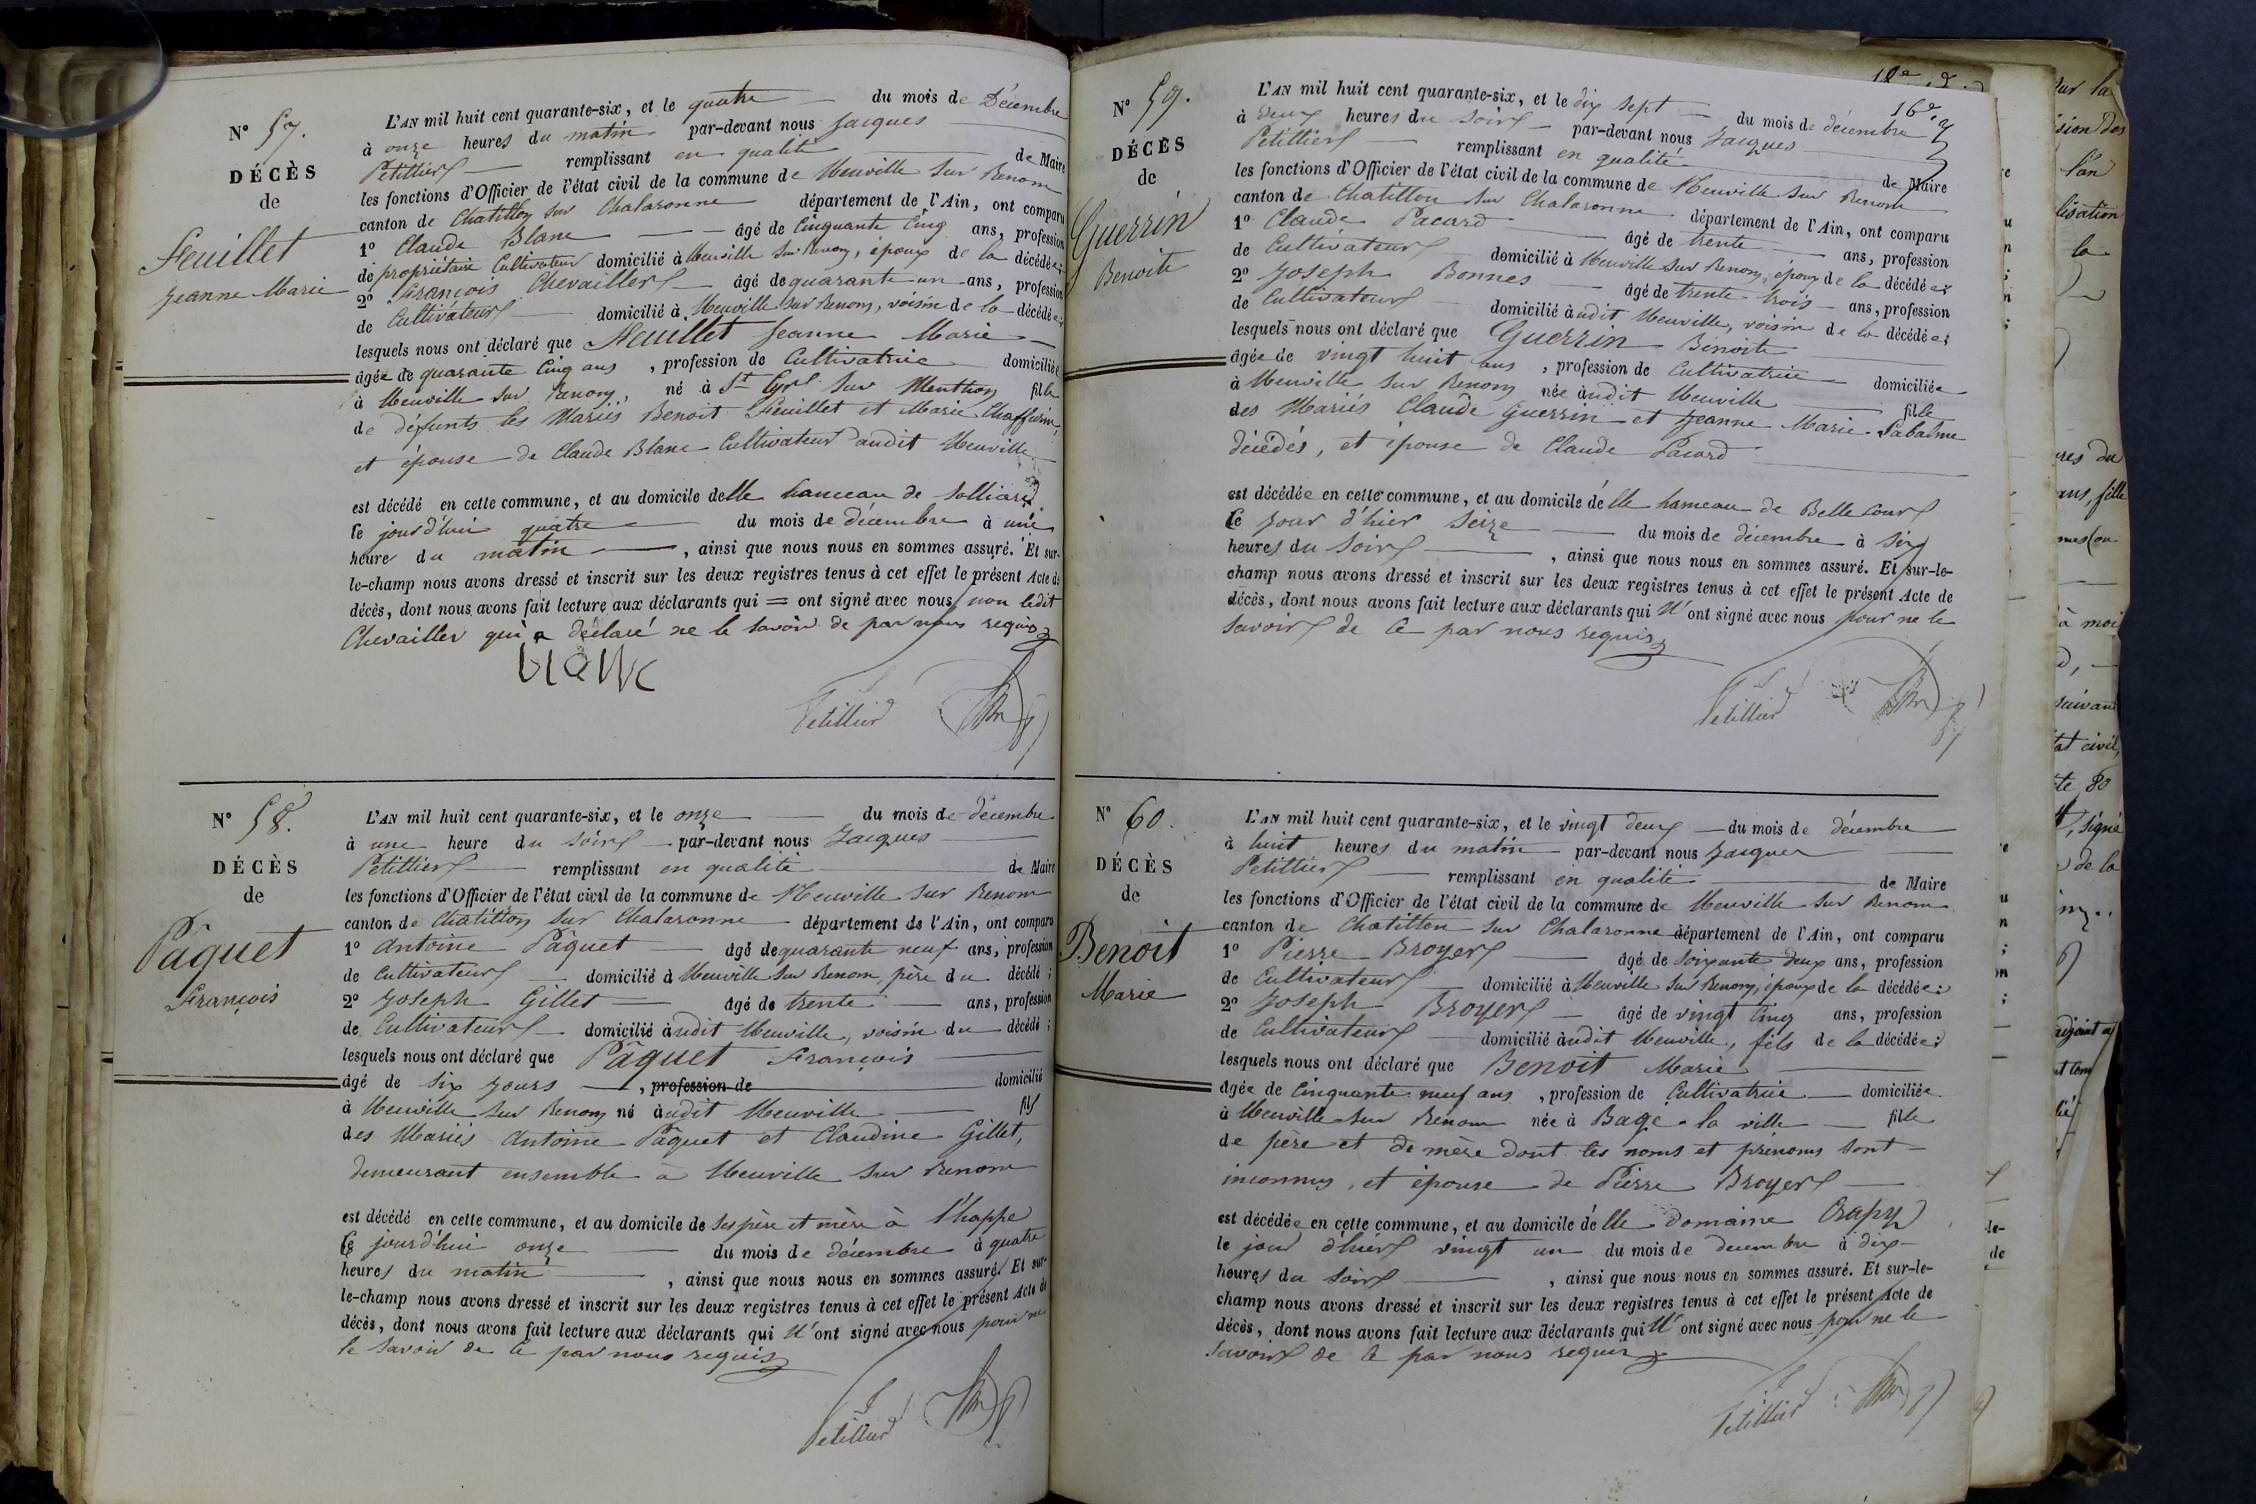 N° 57.
DÉCÈS
de
Feuillet
Jeanne Marie
L'AN mil huit cent quarante-six, et le quatre du mois de Décembre
à onze heures du matin par-devant nous Jacques
Petittier remplissant en qualité de Maire
les fonctions d'Officier de l'état civil de la commune de Neuville sur Renom
canton de Chatillon sur Chalaronne département de l'Ain, ont comparu
1° Claude Blanc âgé de Cinquante Cinq ans, profession
de propriétaire Cultivateur domicilié à Neuville sur Renom, époux de la décédée;
2° François Chevailler âgé de quarante un ans, profession
de Cultivateur domicilié à Neuville sur Renom, voisin de la décédée;
lesquels nous ont déclaré que Feuillet Jeanne Marie
âgée de quarante Cinq ans, profession de Cultivatrice domiciliée
à Neuville sur Renom, né à St Cyr sur Menthon fille
de défunts les Mariés Benoit Feuillet et Marie Chaffurin,
et épouse de Claude Blanc Cultivateur audit Neuville
est décédé en cette commune, et au domicile delle hameau de
le jourd'hui quatre du mois de décembre à une
heure du matin, ainsi que nous nous en sommes assuré. Et sur-
le-champ nous avons dressé et inscrit sur les deux registres tenus à cet effet le présent Acte de
décès, dont nous avons fait lecture aux déclarants qui = ont signé avec nous non ledit
Chevailler qui a déclaré ne le savoir de par nous requis
blanc
Petittier
N° 58.
DÉCÈS
de
Pâquet
François
L'AN mil huit cent quarante-six, et le onze du mois de décembre
à une heure du soir par-devant nous Jacques
Petittier remplissant en qualité de Maire
les fonctions d'Officier de l'état civil de la commune de Neuville sur Renom
canton de Chatillon sur Chalaronne département de l'Ain, ont comparu
1° Antoine Pâquet âgé de quarante neuf ans, profession
de Cultivateur domicilié à Neuville sur Renom, père du décédé;
2° Joseph Gillet âgé de trente ans, profession
de Cultivateur domicilié audit Neuville, voisin du décédé;
lesquels nous ont déclaré que Pâquet François
âgé de six jours, profession de domicilié
à Neuville sur Renom né audit Neuville fils
des Mariés Antoine Pâquet et Claudine Gillet,
demeurant ensemble à Neuville sur Renom
est décédé en cette commune, et au domicile de ses père et mère à
le jourd'hui onze du mois de décembre à quatre
heures du matin, ainsi que nous nous en sommes assuré. Et sur-
le-champ nous avons dressé et inscrit sur les deux registres tenus à cet effet le présent Acte de
décès, dont nous avons fait lecture aux déclarants qui N'ont signé avec nous pour ne
le savoir de ce par nous requis
Petittier
16e
N° 59.
DÉCÈS
de
Guerrin
Benoite
L'AN mil huit cent quarante-six, et le dix sept du mois de décembre
à deux heures du soir par-devant nous Jacques
Petittier remplissant en qualité de Maire
les fonctions d'Officier de l'état civil de la commune de Neuville sur Renom
canton de Chatillon sur Chalaronne département de l'Ain, ont comparu
1° Claude Pacard âgé de trente ans, profession
de Cultivateur domicilié à Neuville sur Renom, époux de la décédée;
2° Joseph Bonnes âgé de trente trois ans, profession
de Cultivateur domicilié audit Neuville, voisin de la décédée;
lesquels nous ont déclaré que Guerrin Benoite
âgée de vingt huit ans, profession de Cultivatrice domiciliée
à Neuville sur Renom née audit Neuville fille
des Mariés Claude Guerrin et Jeanne Marie Sabalme
décédés, et épouse de Claude Pacard
est décédée en cette commune, et au domicile d'elle hameau de Belle Cour
le jour d'hier seize du mois de décembre à six
heures du soir, ainsi que nous nous en sommes assuré. Et sur-le-
champ nous avons dressé et inscrit sur les deux registres tenus à cet effet le présent Acte de
décès, dont nous avons fait lecture aux déclarants qui N'ont signé avec nous pour ne le
savoir de ce par nous requis
Petittier
N° 60.
DÉCÈS
de
Benoit
Marie
L'AN mil huit cent quarante-six, et le vingt deux du mois de décembre
à huit heures du matin par-devant nous Jacques
Petittier remplissant en qualité de Maire
les fonctions d'Officier de l'état civil de la commune de Neuville sur Renom
canton de Chatillon sur Chalaronne département de l'Ain, ont comparu
1° Pierre Broyer âgé de soixante deux ans, profession
de Cultivateur domicilié à Neuville sur Renom, époux de la décédée;
2° Joseph Broyer âgé de vingt Cinq ans, profession
de Cultivateur domicilié audit Neuville, fils de la décédée;
lesquels nous ont déclaré que Benoit Marie
âgée de Cinquante neuf ans, profession de Cultivatrice domiciliée
à Neuville sur Renom née à Bage la ville fille
de père et de mère dont les noms et prénoms sont
inconnus, et épouse de Pierre Broyer
est décédée en cette commune, et au domicile d'elle domaine Crapy
le jour d'hier vingt un du mois de decembre à dix
heures du soir, ainsi que nous nous en sommes assuré. Et sur-le-
champ nous avons dressé et inscrit sur les deux registres tenus à cet effet le présent Acte de
décès, dont nous avons fait lecture aux déclarants qui N'ont signé avec nous pour ne le
savoir de ce par nous requis
Petittier